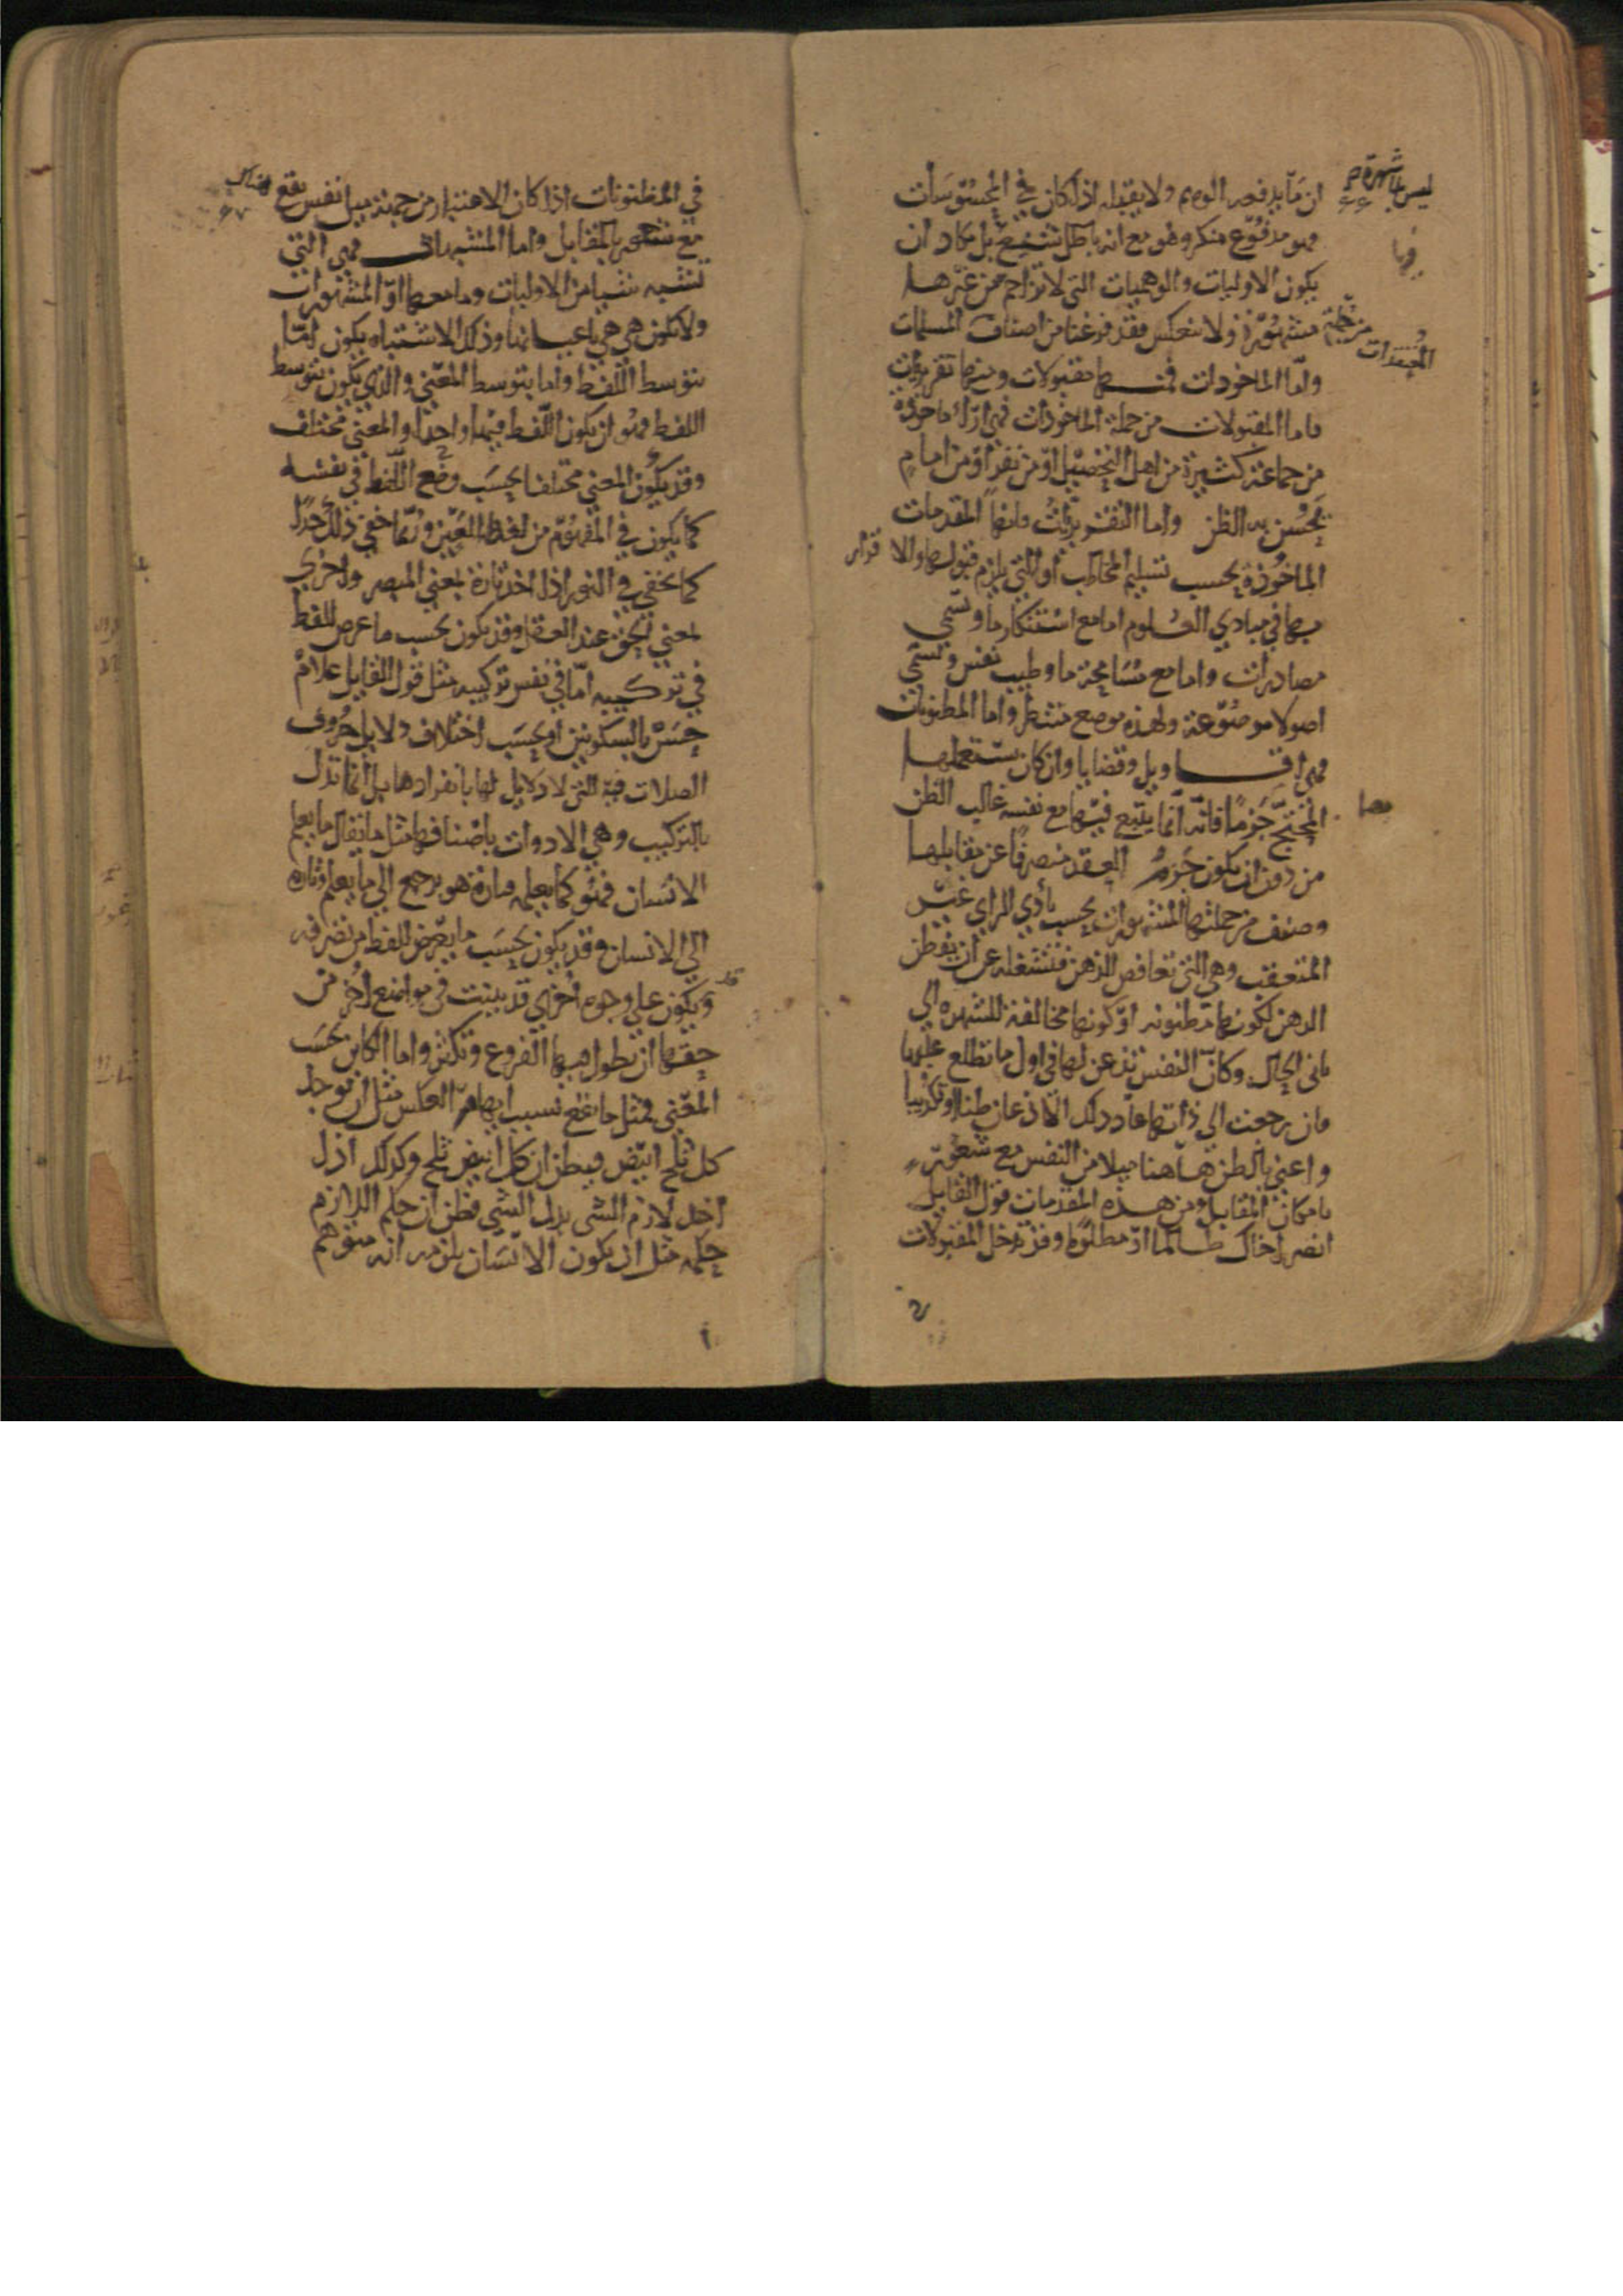 ان ما يدفعه الوهم ولا يقبله اذا كان في المحسوسات
فهو مدفوع منكر وهو مع انه باطل شنيع بل يكاد ان
يكون الاوليات والوهميات التي لا تزاحم من غيرها
مشهورة ولا تنعكس فقد فرغنا من اصناف المسلمات
واما الماخوذات فمنها مقبولات ومنها تقريريات
فاما المقبولات من جملة الماخوذات فهي اراء ماخوذة
من جماعة كثيرة من اهل التحصيل او من نفر او من امام
يحسن به الظن واما التقريريات فانها المقدمات
الماخوذة بحسب تسليم المخاطب او التي يلزم قبولها والاقرار
بها في مبادي العلوم اما مع استنكار ما وتسمي
مصادرات واما مع مسامحة ما وطيب نفس وتسمي
اصولا موضوعة ولهذه موضع منتظر واما المظنونات
فهي اقاويل وقضايا وان كان يستعملها
المحتج جزما فانه انما يتبع فيها مع نفسه غالب الظن
من دون ان يكون جزم العقد منصرفا عن مقابلها
وصنف من جملتها المشهورات بحسب بادي الراي غير
المتعقب وهي التي تغافص الذهن فتشغله عن ان يفطن
الذهن لكونها مظنونه او كونها مخالفة للشهره الي
ثاني الحال وكان النفس تذعن لها في اول ما تطلع عليها
فان رجعت الي ذاتها عاد ذلك الاذعان ظنا او تكذيبا
واعني بالظن هاهنا ميلا من النفس مع شعور
بامكان المقابل ومن هذه المقدمات قول القايل
انصر اخاك ظالما او مظلوما وقد تدخل المقبولات
ليس لها شهرة
من جملة
المعتقدات
في المظنونات اذا كان الاعتبار من جهة ميل نفس يقع هناك
مع شعور بالمقابل واما المشبهات فهي التي
تشبه شيا من الاوليات وما معها او المشهورات
ولا تكون هي هي باعيانها وذلك الاشتباه يكون اما
بتوسط اللفظ واما بتوسط المعني والذي يكون بتوسط
اللفظ فهو ان يكون اللفظ فيهما واحدا والمعني مختلف
وقد يكون المعني مختلفا بحسب وضع اللفظ في نفسه
كما يكون في المفهوم من لفظ العين وربما خفي ذلك جدا
كما يخفي في النور اذا اخذ تارة بمعني المبصر واخري
بمعني الحق عند العقل وقد يكون بحسب ما عرض للفظ
في تركيبه اما في نفس تركيبه مثل قول القايل غلام
حسن بالسكونين او بحسب اختلاف دلايل حروف
الصلات فيه التي لا دلايل لها بانفرادها بل انما تدل
بالتركيب وهي الادوات باصنافها مثل ما يقال ما يعلم
الانسان فهو كما يعلمه فتارة هو يرجع الي ما يعلم وتاره
الي الانسان وقد يكون بحسب ما يعرض للفظ من تصرفه
وقد يكون علي وجوه اخري قد بينت في مواضع اخر من
حقها ان تطول فيها الفروع وتكثر واما الكاين بحسب
المعني فمثل ما يقع بسبب ايهام العكس مثل ان يوخذ
كل ثلج ابيض فيظن ان كل ابيض ثلج وكذلك اذا
اخذ لازم الشي بدل الشي فظن ان حكم اللازم
حكمه مثل ان يكون الانسان يلزمه انه متوهم